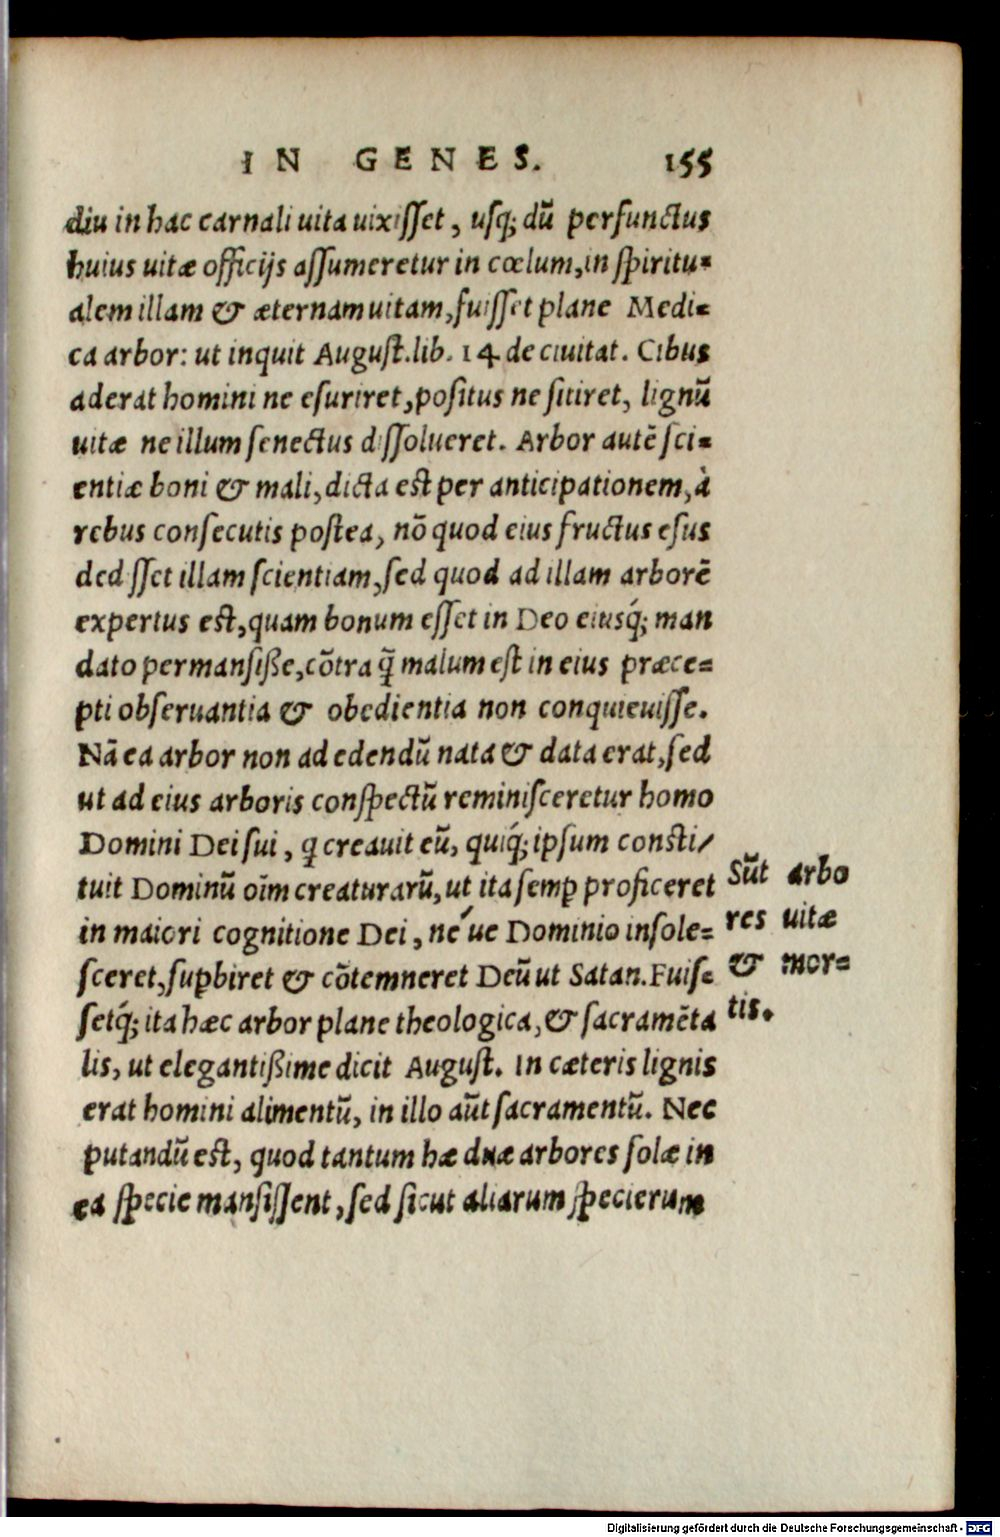 IN GENES. 155
diu in hac carnali uita uixiſſet, uſq; dũ perfunctus
huius uitæ officijs aſſumeretur in cœlum, in ſpiritu-
alem illam & æternam uitam, fuiſſet plane Medi-
ca arbor: ut inquit Auguſt. lib. 14 de ciuitat. Cibus
aderat homini ne eſuriret, poſitus ne ſitiret, lignũ
uitæ ne illum ſenectus diſſolueret. Arbor autẽ ſci-
entiæ boni & mali, dicta eſt per anticipationem, à
rebus conſecutis poſtea, nõ quod eius fructus eſus
dediſſet illam ſcientiam, ſed quod ad illam arborẽ
expertus eſt, quam bonum eſſet in Deo eiusq́; man
dato permanſiße, cõtra q̃ malum eſt in eius præce-
pti obſeruantia & obedientia non conquieuiſſe.
Nã ea arbor non ad edendũ nata & data erat, ſed
ut ad eius arboris conſpectũ reminiſceretur homo
Domini Dei ſui, q creauit eũ, quiq́; ipſum conſti/
tuit Dominũ oĩm creaturarũ, ut ita ſemꝑ proficeret
in maiori cognitione Dei, ne ́ue Dominio inſole-
ſceret, ſuꝑbiret & cõtemneret Deũ ut Satan. Fuiſ-
ſetq́; ita hæc arbor plane theologica, & ſacramẽta
lis, ut elegantißime dicit Auguſt. In cæteris lignis
erat homini alimentũ, in illo aũt ſacramentũ. Nec
putandũ eſt, quod tantum hæ duæ arbores ſolæ in
ea ſpecie manſiſſent, ſed ſicut aliarum ſpecierum
Sũt arbo
res uitæ
& mor-
tis.
Digitalisierung gefördert durch die Deutsche Forschungsgemeinschaft - DFG